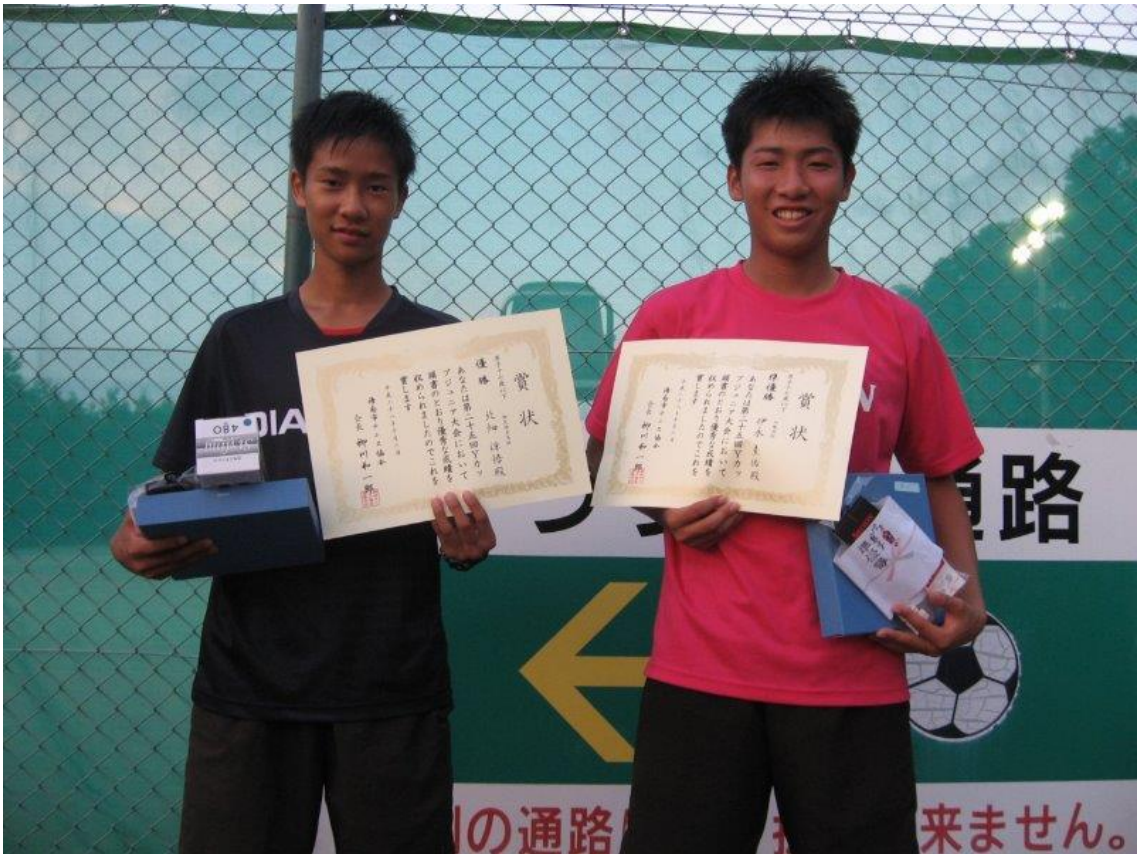 賞状
優勝
あなたは第二十五回Yカッ
プジュニア大会において
頭書のとおり優秀な成績を
収められましたのでこれを
賞します
海南市テニス協会
会長 柳川和一郎
賞状
準優勝
あなたは第二十五回Yカッ
プジュニア大会において
頭書のとおり優秀な成績を
収められましたのでこれを
賞します
海南市テニス協会
会長 柳川和一郎
DIA
480
N
通路
の通路
来ません。